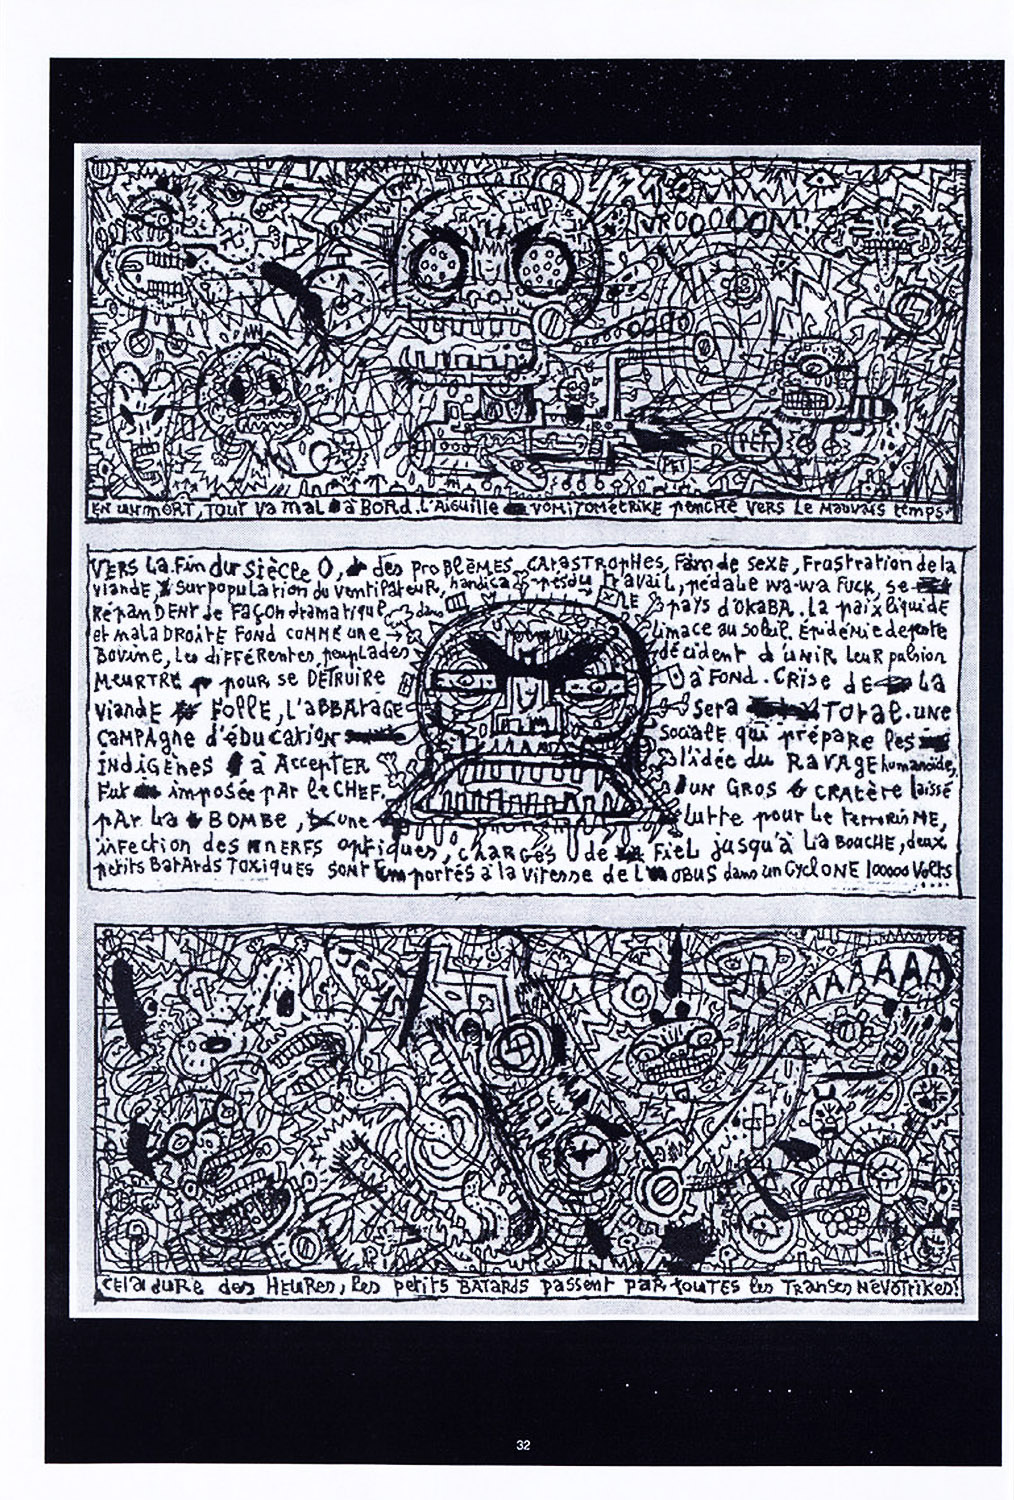 VROOOOOM!
PRT
EN UN MORT, TOUT VA MAL à BORD. L'AIGUILLE VOMITOMETRIKE PENCHE VERS LE MAUVAIS TEMPS.
VERS La Fin du SIÈCLE 0, des PROBLÈMES, CATASTROPHES, Faim de SEXE, Frustration de la
VIANDE, surpopulation du ventilateur, handicapés du travail, pédale wa-wa FUCK, se
RÉPANDENT de FAÇON dramatique dans LE pays d'OKABA. La paix liquide
et MALADROITE FOND COMME une limace au soleil. Épidémie de peste
BOVINE, Les DIFFÉRENTES peuplades décident d'UNIR LeuR pulsion
MEURTRE pour se DÉTRUIRE à FOND. CRise DE La
VIANDE FOLLE, L'ABBATAGE sera TOTAL. UNE
CAMPAGNE d'ÉDUCATION sociale qui prépare les
INDIGÈNES à ACCEPTER l'idée du RAVAGE humanoïde,
FUT imposée pAR le CHEF. UN GROS CRATÈRE laissé
pAR La BOMBE, une lutte pour le terrorisME,
infection des NERFS optiques, CHARGÉS de FIEL jusqu'à La BOUCHE, deux
petits BatARds TOXIQUES SONT EmportÉs à la vitesse de L'OBUS dans un CYCLONE 100000 Volts
JESUS
AAAAAA
CELA DURE des HEURES, Les petits BATARDS passent PAR TOUTES les TRANSES NÉVOTRIKES!
32